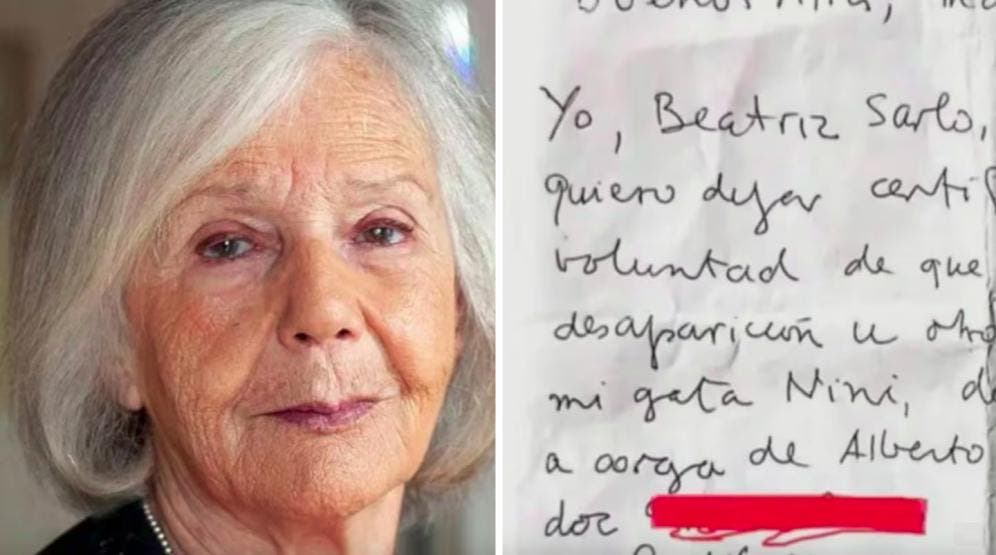 Yo, Beatriz Sarlo,
quiero dejar certif
voluntad de que
desaparición u otro
mi gata Nini, de
a cargo de Alberto
doc